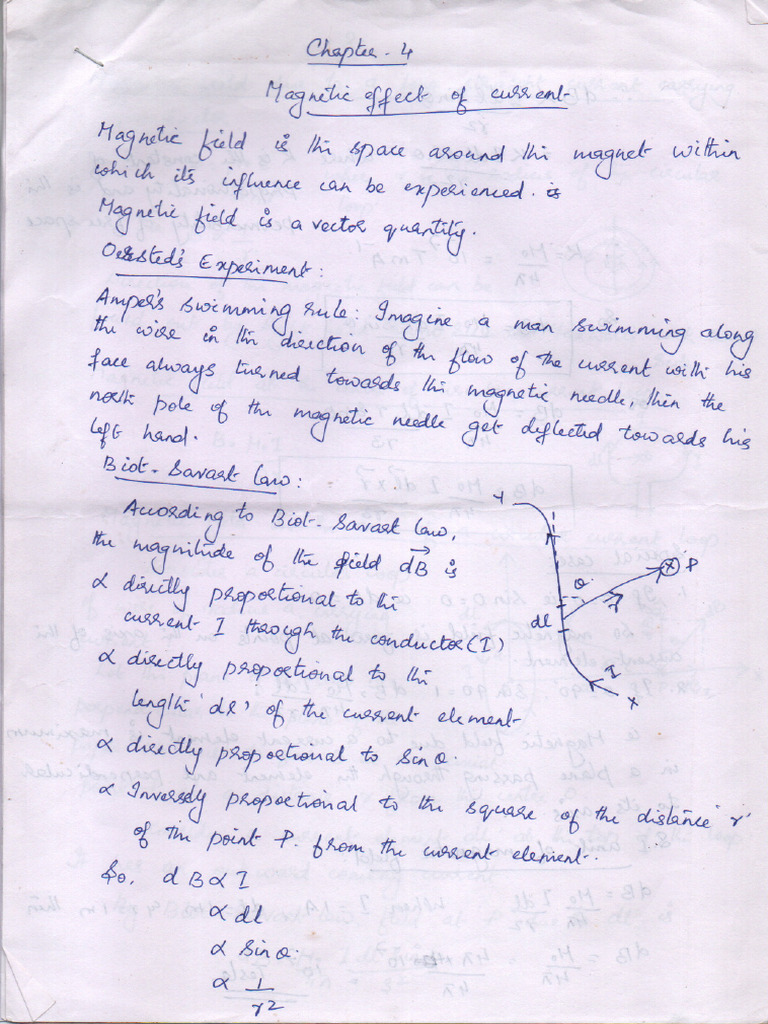 Chapter - 4
Magnetic effect of current
Magnetic field is the space around the magnet within
which its influence can be experienced. is
Magnetic field is a vector quantity.
Oersted's Experiment:
Amper's swimming rule: Imagine a man swimming along
the wire in the direction of the flow of the current with his
face always turned towards the magnetic needle, then the
north pole of the magnetic needle get deflected towards his
left hand.
Biot-Savart law:
According to Biot-Savart law,
the magnitude of the field dB→ is
α directly proportional to the
current I through the conductor (I)
α directly proportional to the
length 'dl' of the current element
α directly proportional to sin θ.
α Inversely proportional to the square of the distance 'r'
of the point P. from the current element.
So, dB α I
α dl
α sin θ.
α 1/r2
Y
P
θ
r
dl
I
X